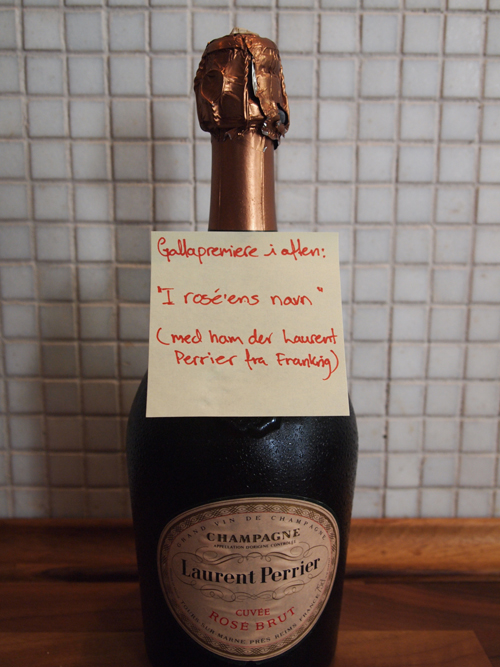 Gallapremiere i aften:
"I rosé'ens navn"
(med ham der Laurent
Perrier fra Frankrig)
GRAND VIN DE CHAMPAGNE
CHAMPAGNE
APPELLATION D'ORIGINE CONTRÔLÉE
Laurent Perrier
CUVÉE
ROSÉ BRUT
TOURS SUR MARNE, PRÈS REIMS, FRANCE